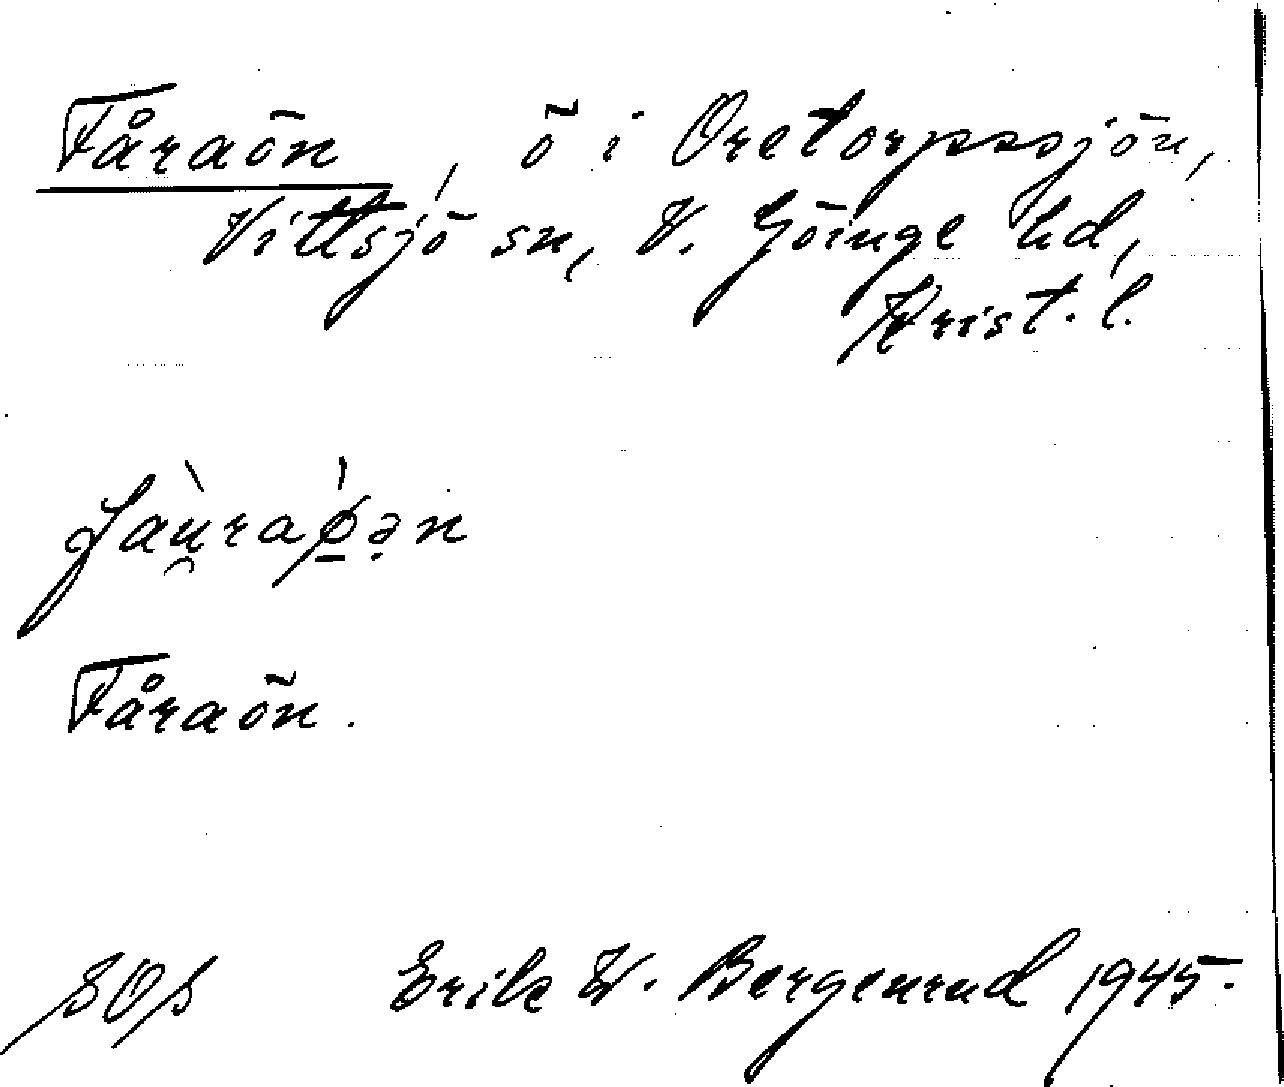 Fåraön, ö i Oretorpssjön,
Vittsjö sn, V. Göinge hd,
Krist. l.
fàu̯raˈø̱ə̣n
Fåraön.
SOS Erik W. Bergenrud 1945.